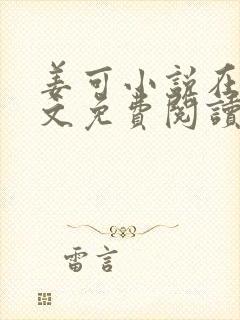 姜可小说在
文免费閱讀
雷言